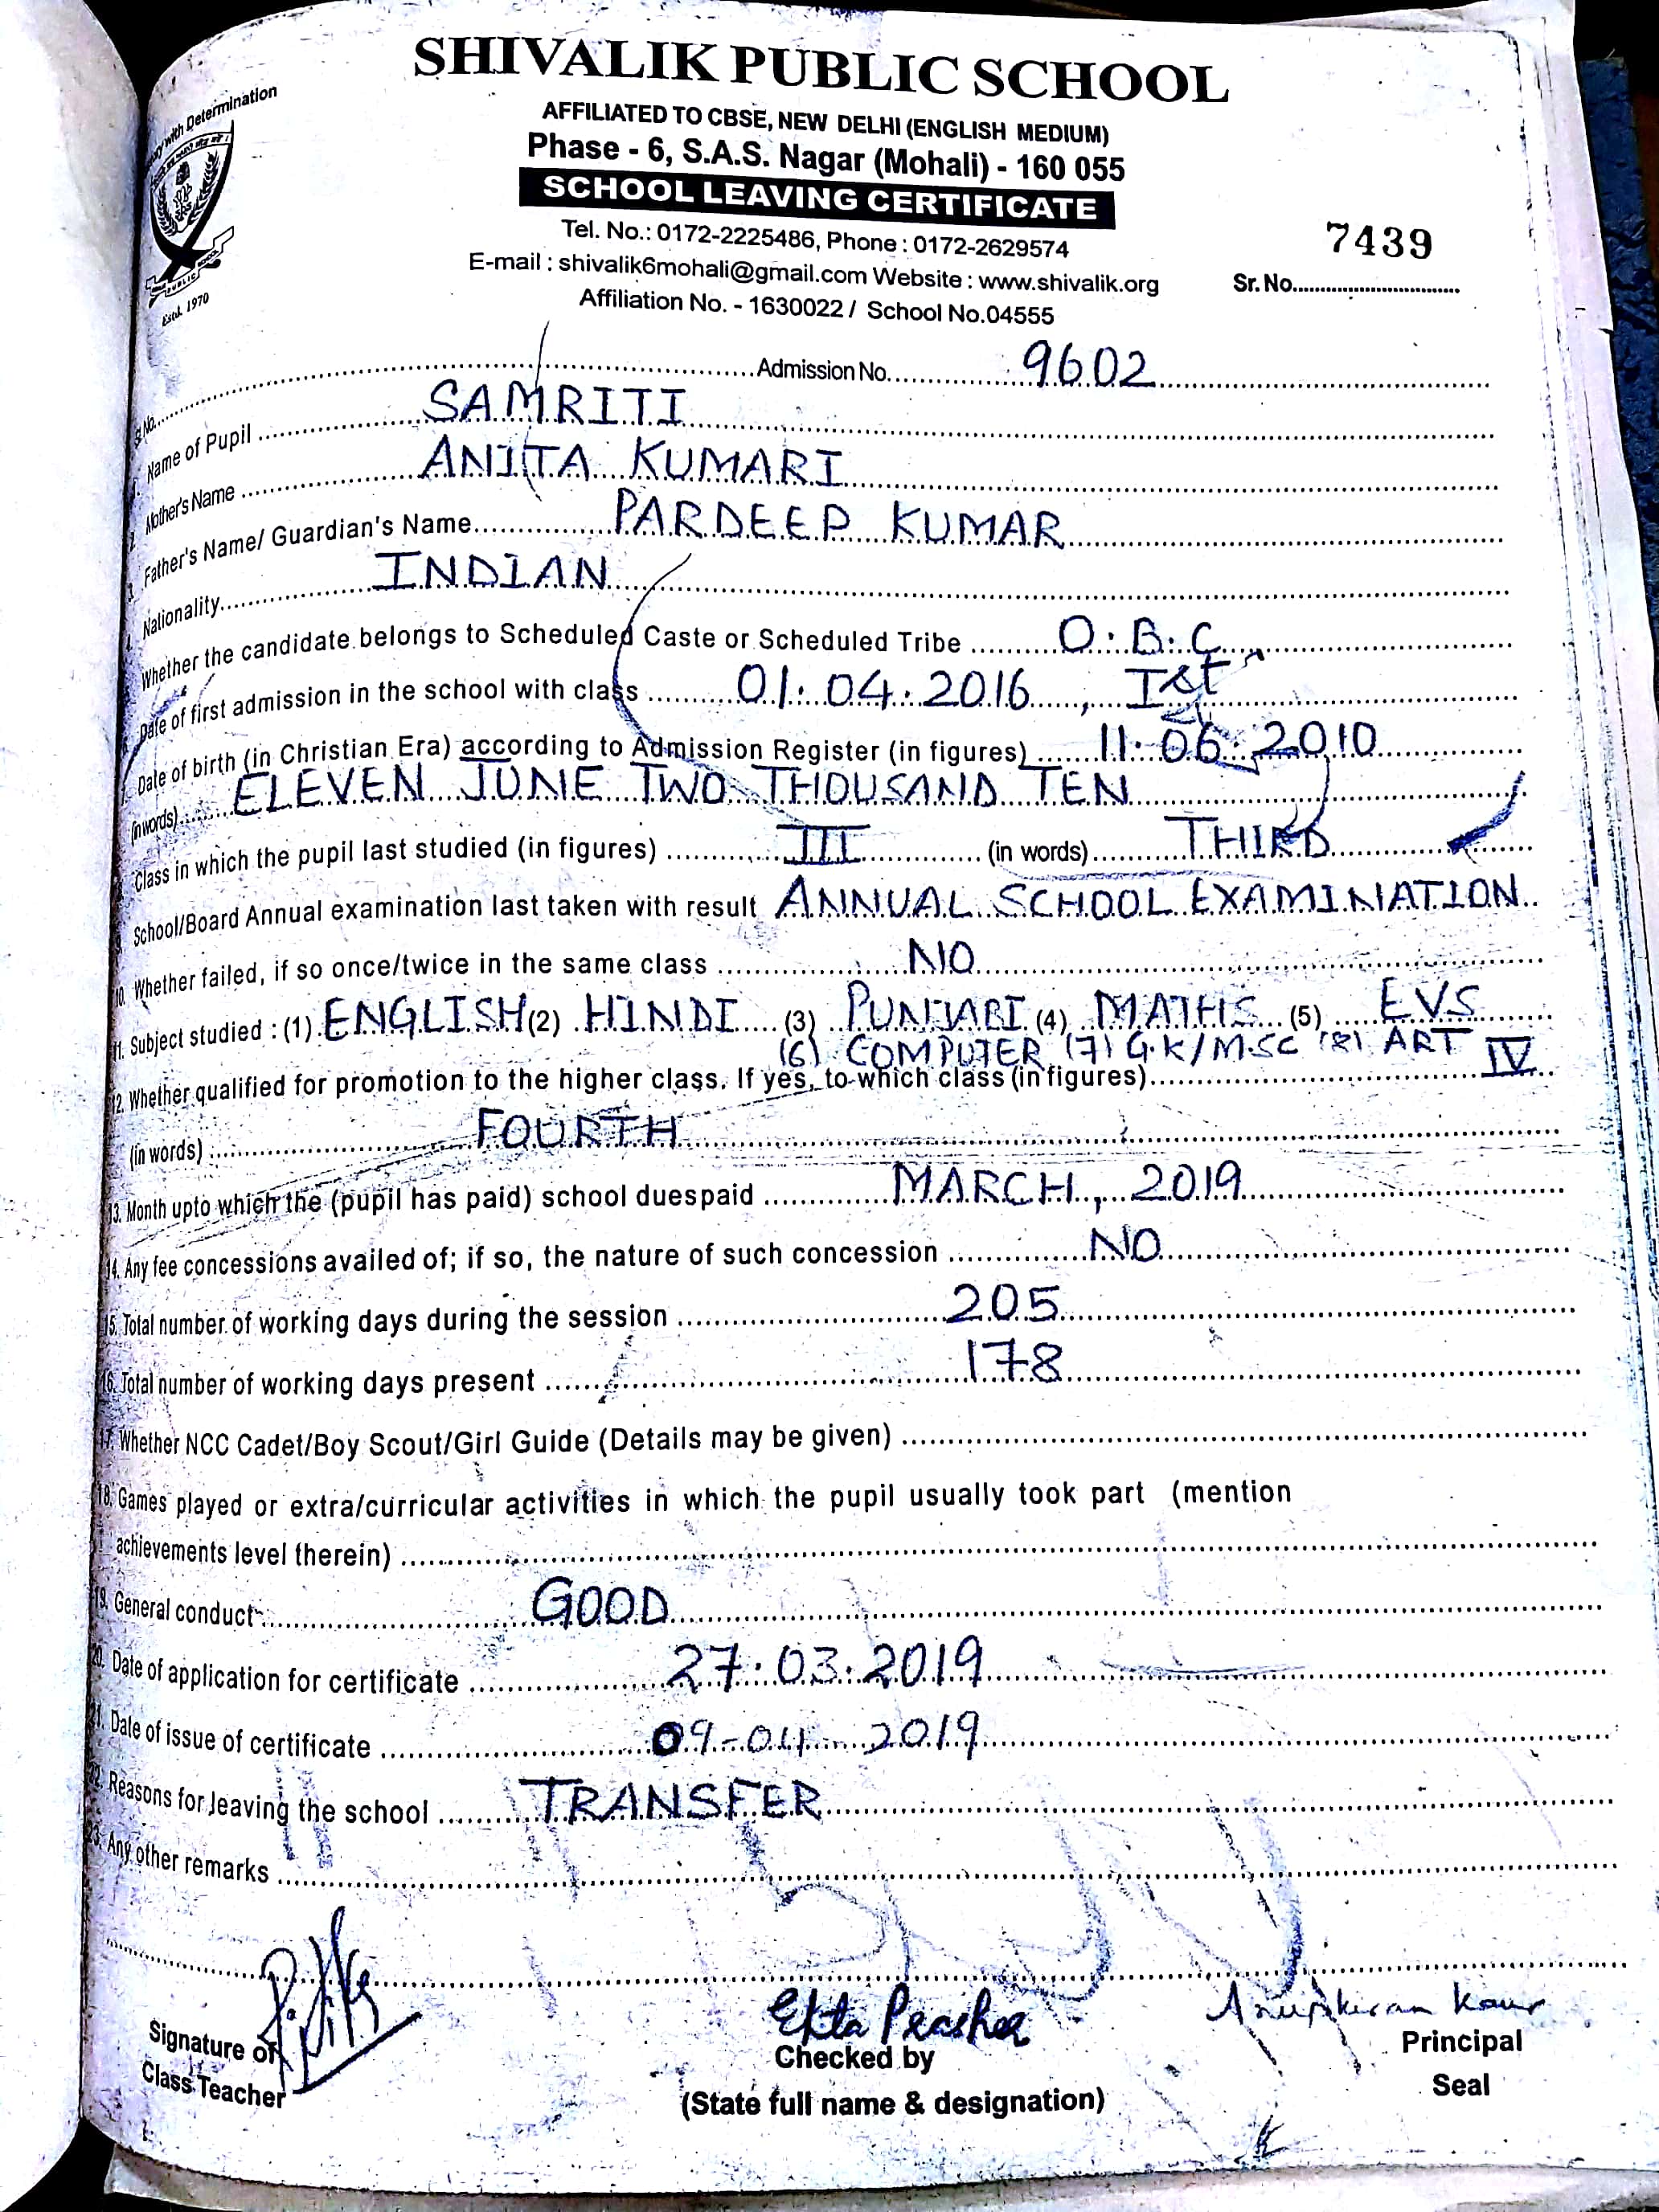 SHIVALIK PUBLIC SCHOOL
AFFILIATED TO CBSE, NEW DELHI (ENGLISH MEDIUM)
Phase - 6, S.A.S. Nagar (Mohali) - 160 055
SCHOOL LEAVING CERTIFICATE
Tel. No.: 0172-2225486, Phone : 0172-2629574
E-mail : shivalik6mohali@gmail.com Website : www.shivalik.org
Affiliation No. - 1630022 / School No.04555
with Determination
PUBLIC SCHOOL
Estd. 1970
7439
Sr. No.
Sl. No. Admission No. 9602
1. Name of Pupil SAMRITI
2. Mother's Name ANITA KUMARI
3. Father's Name/ Guardian's Name PARDEEP KUMAR
4. Nationality INDIAN
Whether the candidate belongs to Scheduled Caste or Scheduled Tribe O.B.C
Date of first admission in the school with class 01.04.2016, Ist
Date of birth (in Christian Era) according to Admission Register (in figures) 11.06.2010
(in words) ELEVEN JUNE TWO THOUSAND TEN
Class in which the pupil last studied (in figures) III (in words) THIRD
School/Board Annual examination last taken with result ANNUAL SCHOOL EXAMINATION
10. Whether failed, if so once/twice in the same class NO
11. Subject studied : (1) ENGLISH (2) HINDI (3) PUNJABI (4) MATHS (5) EVS
(6) COMPUTER (7) G.K/M.SC (8) ART
12. Whether qualified for promotion to the higher class. If yes, to which class (in figures) IV
(in words) FOURTH
13. Month upto which the (pupil has paid) school duespaid MARCH, 2019
14. Any fee concessions availed of; if so, the nature of such concession NO
15. Total number of working days during the session 205
16. Total number of working days present 178
17. Whether NCC Cadet/Boy Scout/Girl Guide (Details may be given)
18. Games played or extra/curricular activities in which the pupil usually took part (mention
achievements level therein)
19. General conduct GOOD
20. Date of application for certificate 27.03.2019
21. Date of issue of certificate 09-04-2019
22. Reasons for leaving the school TRANSFER
23. Any other remarks
Signature of
Class Teacher
Ekta
Checked by
(State full name & designation)
Anupkiran Kaur
Principal
Seal